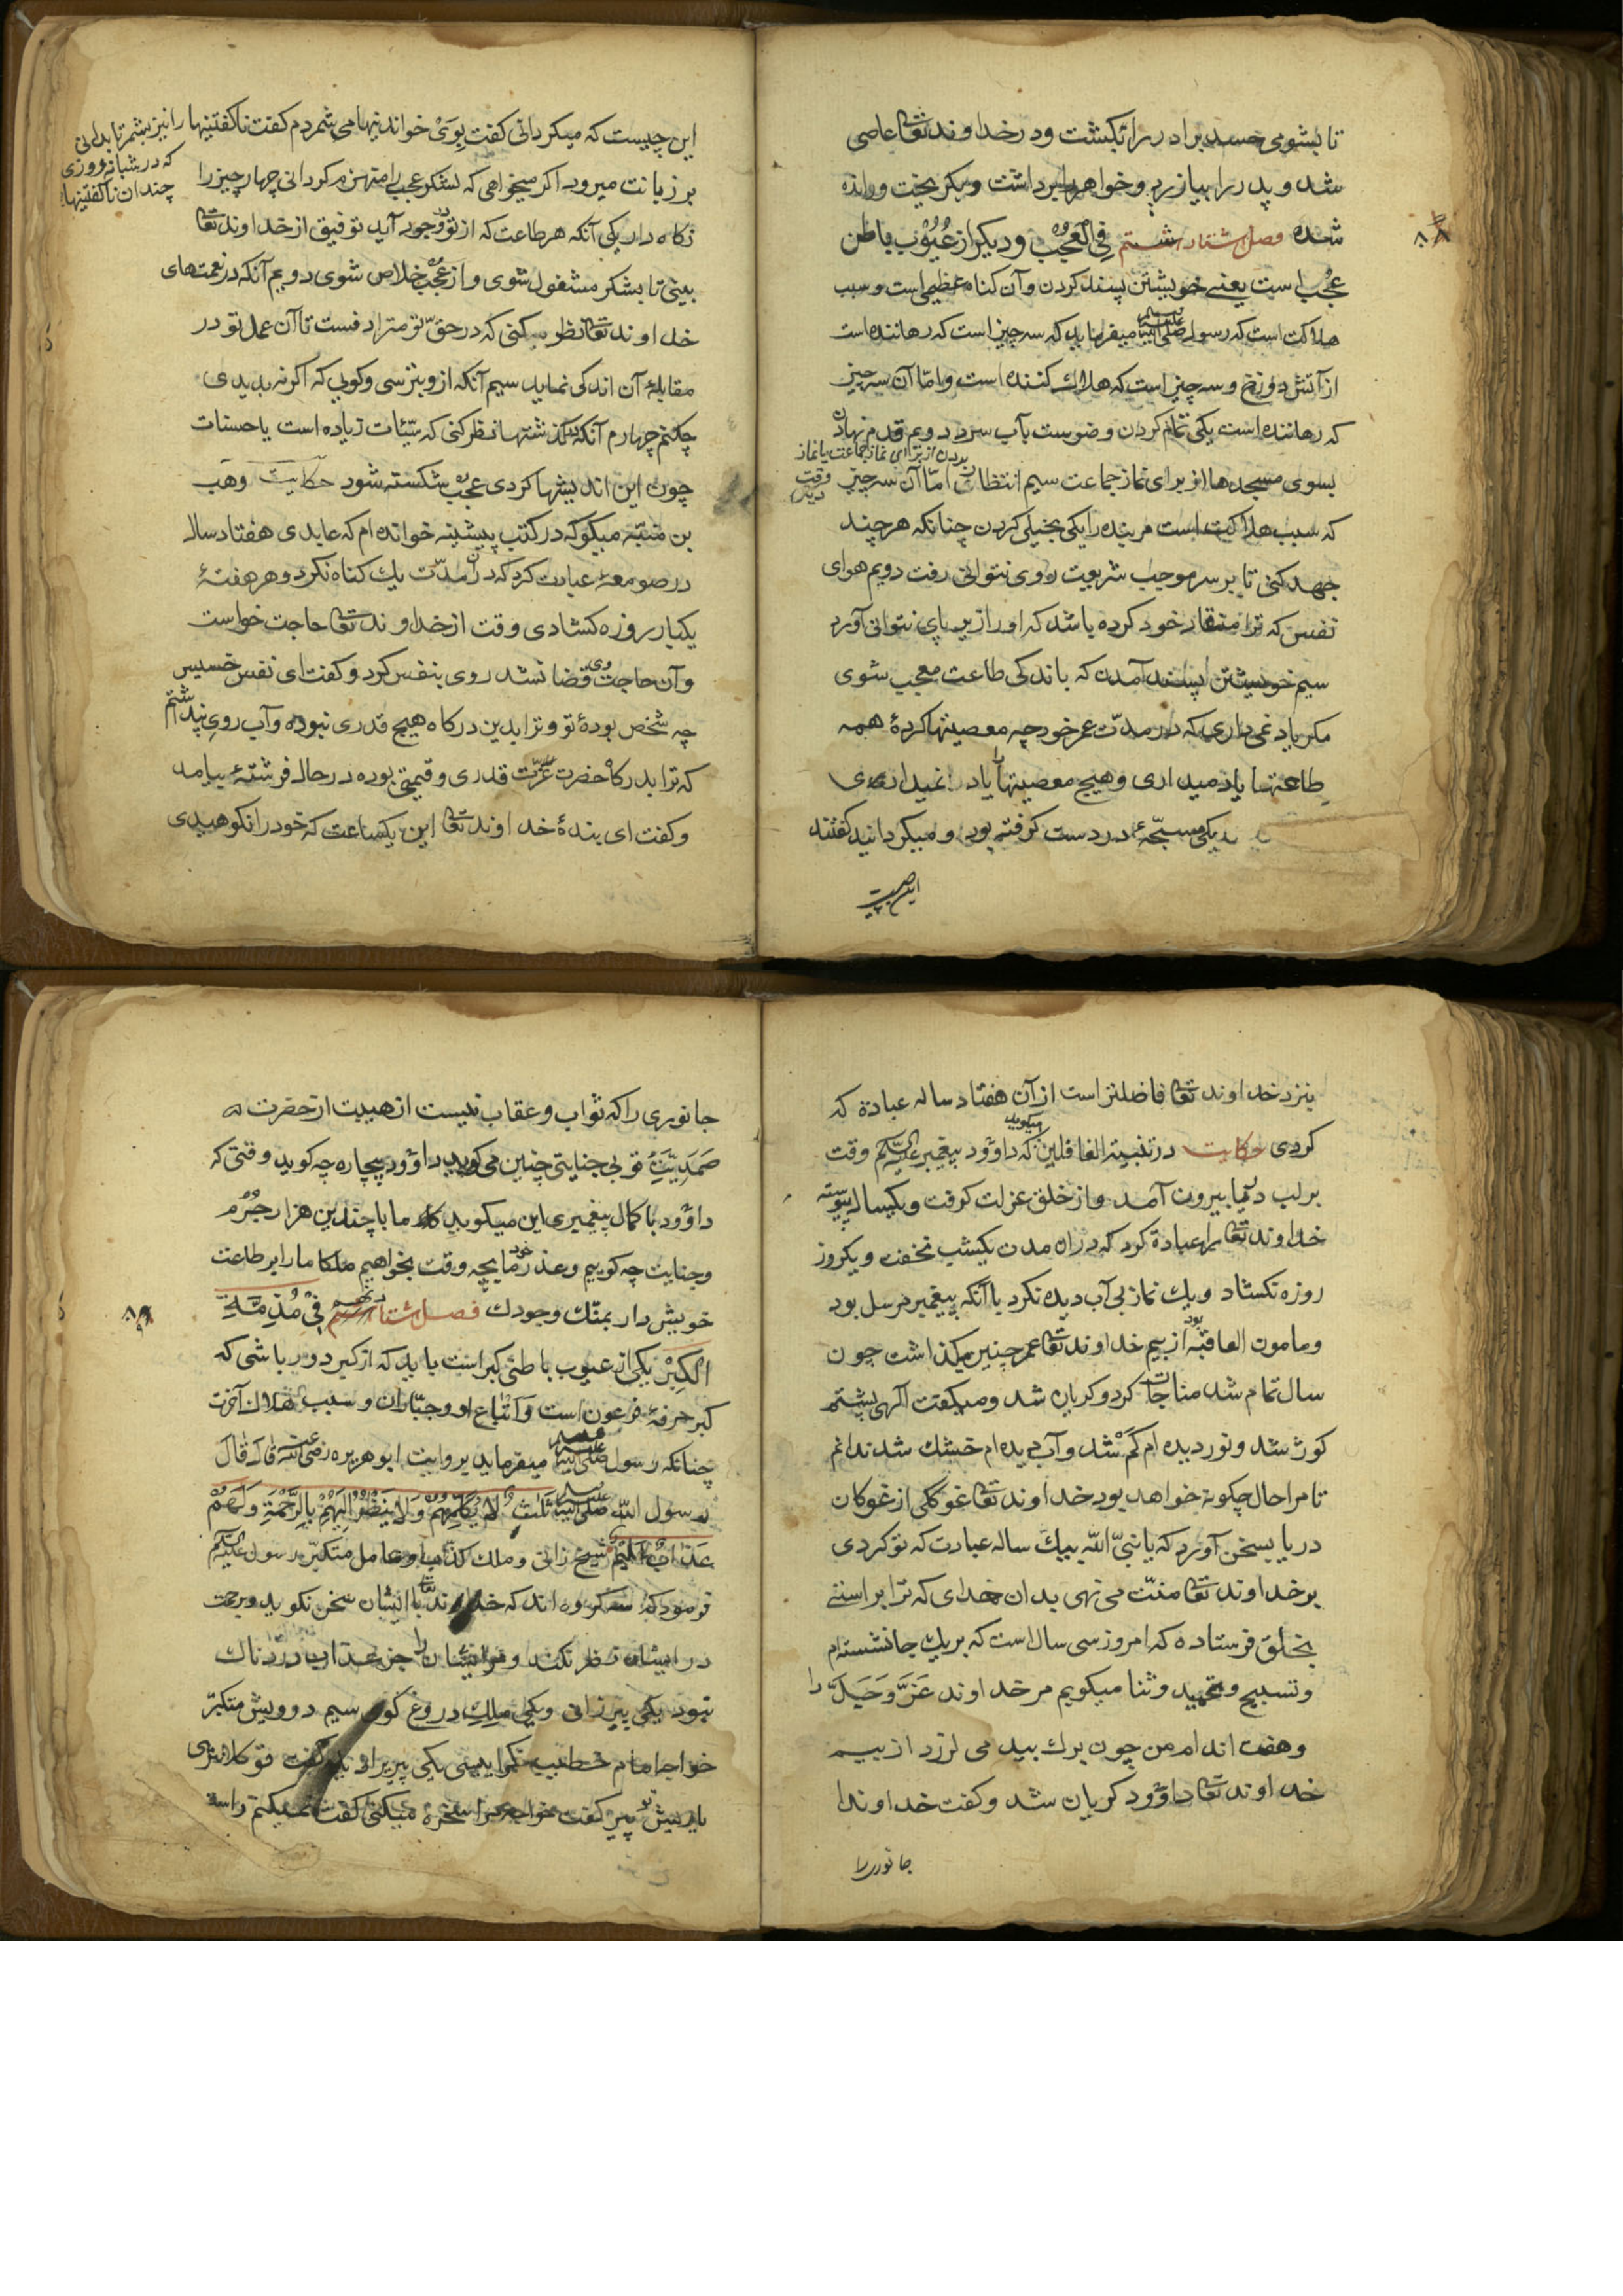 تا بشومی حسد برادر را بکشت و در خداوند تعا عاصی
شد و پدر را بیازرد و خواهر را برداشت و بگریخت و رانده
شده فصل هشتاد هشتم فی العجب و دیگر از عیوب باطن
عجب است یعنی خویشتن پسند کردن و آن گناه عظیم است و سبب
هلاکت است که رسول صلی الله علیه وسلم میفرماید که سه چیز است که رهاننده است
از آتش دوزخ و سه چیز است که هلاک کننده است و اما آن سه چیز
که رهاننده است یکی تمام کردن وضوست بآب سرد دویم قدم نهادن
بسوی مسجدها از برای نماز جماعت سیم انتظار بردن از برای نماز جماعت یا نماز وقت دیگر اما آن سه چیز
که سبب هلاکت است مر بنده را یکی بخیلی کردن چنانکه هر چند
جهد کنی تا بر سر موجب شریعت روی نتوانی رفت دویم هوای
نفس که ترا منقار خود کرده باشد که او را زیر پای نتوانی آورد
سیم خویشتن پسند آمدن که باندکی طاعت معجب شوی
مگر یاد نمی داری که در مدت عمر خود چه معصیتها کردۀ همه
طاعتها یاد میداری و هیچ معصیتها یاد نمیداری
یکی مسبحۀ در دست گرفته بود و میگردانید گفتند
این چیست
۸۸
این چیست که میگردانی گفت بوی خواندنیها می شمردم گفت ناگفتنیها را نیز بشمر تا بدانی
که در شبانروزی
چندان ناگفتنیها
بر زبانت میرود اگر میخواهی که لشکر عجب را منهزم گردانی چهار چیز را
نگاه دار یکی آنکه هر طاعت که از تو وجود آید توفیق از خداوند تعا
بینی تا بشکر مشغول شوی و از عجب خلاص شوی دویم آنکه در نعمت های
خداوند تعا نظر کنی که در حق تو مترادفست تا آن عمل تو در
مقابلۀ آن اندکی نماید سیم آنکه ازو بترسی و گویی که اگر نه بدیدی
چکنم چهارم آنکه گذشتها نظر کنی که سیئات زیاده است یا حسنات
چون این اندیشها کردی عجب شکسته شود حکایت وهب
بن منبه میگوید که در کتب پیشینه خوانده ام که عابدی هفتاد سال
در صومعه عبادت کرد که در آن مدت یک گناه نکرد و هر هفتۀ
یکبار روزه گشادی وقت از خداوند تعا حاجت خواست
و آن حاجت وی قضا نشد روی بنفس کرد و گفت ای نفس خسیس
چه شخص بودۀ تو و ترا بدین درگاه هیچ قدری نبوده و آب روی نپنداشتم
که ترا بدرگاه حضرت عزت قدری و قیمتی بوده در حال فرشتۀ بیامد
و گفت ای بندۀ خداوند تعا این یکساعت که خود را نکوهیدی
بنزد خداوند تعا فاضلتر است از آن هفتاد ساله عبادة که
کردی حکایت در تنبیه الغافلین میگوید که داؤد پیغمبر علیه السلام وقت
بر لب دریا بیرون آمد و از خلق عزلت گرفت و یکسال پیوسته
خداوند تعا را عبادة کرد که در آن مدت یکشب نخفت و یکروز
روزه نکشاد و یک نماز بی آب دیده نکرد با آنکه پیغمبر مرسل بود
و مامون العاقبه بود از بیم خداوند تعا عمر چنین میگذاشت چون
سال تمام شد مناجات کرد و گریان شد و میگفت الهی پشتم
کوژ شد و نور دیده ام کم شد و آب دیده ام خشک شد ندانم
تا مرا حال چگونه خواهد بود خداوند تعا غوکی از غوکان
دریا بسخن آورد که یا نبی الله بیک ساله عبادت که تو کردی
بر خداوند تعا منت می نهی بدان خدای که ترا براستی
بخلق فرستاده که امروز سی سال است که بریک جا نشسته ام
و تسبیح و تحمید و ثنا میگویم مر خداوند عز و جل را
و هفت اندام من چون برگ بید می لرزد از بیم
خداوند تعا داؤد گریان شد و گفت خداوندا
جانوری را
جانوری را که ثواب و عقاب نیست از هیبت از حضرت
صمدیت تو بی جنایتی چنین می گوید داؤد بیچاره چه گوید وقتی که
داؤد با کمال پیغمبری این میگوید ما با چندین هزار جرم
و جنایت چه گوییم و عذر خود ما بچه وقت بخواهیم ملکا ما را بر طاعت
خویش دار بمنک وجودک فصل هشتاد نهم فی مذمة
الکبر یکی از عیوب باطنی کبر است باید که از کبر دور باشی که
کبر حرفۀ فرعون است و اتباع او و جباران و سبب هلاک آخرت
چنانکه رسول صلی الله علیه وسلم میفرماید بروایت ابو هریره رضی الله عنه قال قال
رسول الله صلی الله علیه وسلم ثلث لا یکلمهم ولا ینظر الیهم بالرحمة ولهم
عذاب الیم شیخ زانی و ملک کذاب و عامل متکبر رسول علیه السلام
فرمود که سه گروه اند که خداوند تعا با ایشان سخن نگوید و برحمت
در ایشان نظر نکند و مر ایشان را جز عذاب دردناک
نبود یکی پیر زانی و یکی ملک دروغ گوی سیم درویش متکبر
خواجه امام خطیب یکی پیر براو گفت
پیر گفت خواجه مرا سخره میکنی گفت نمیکنم راست
۸۹